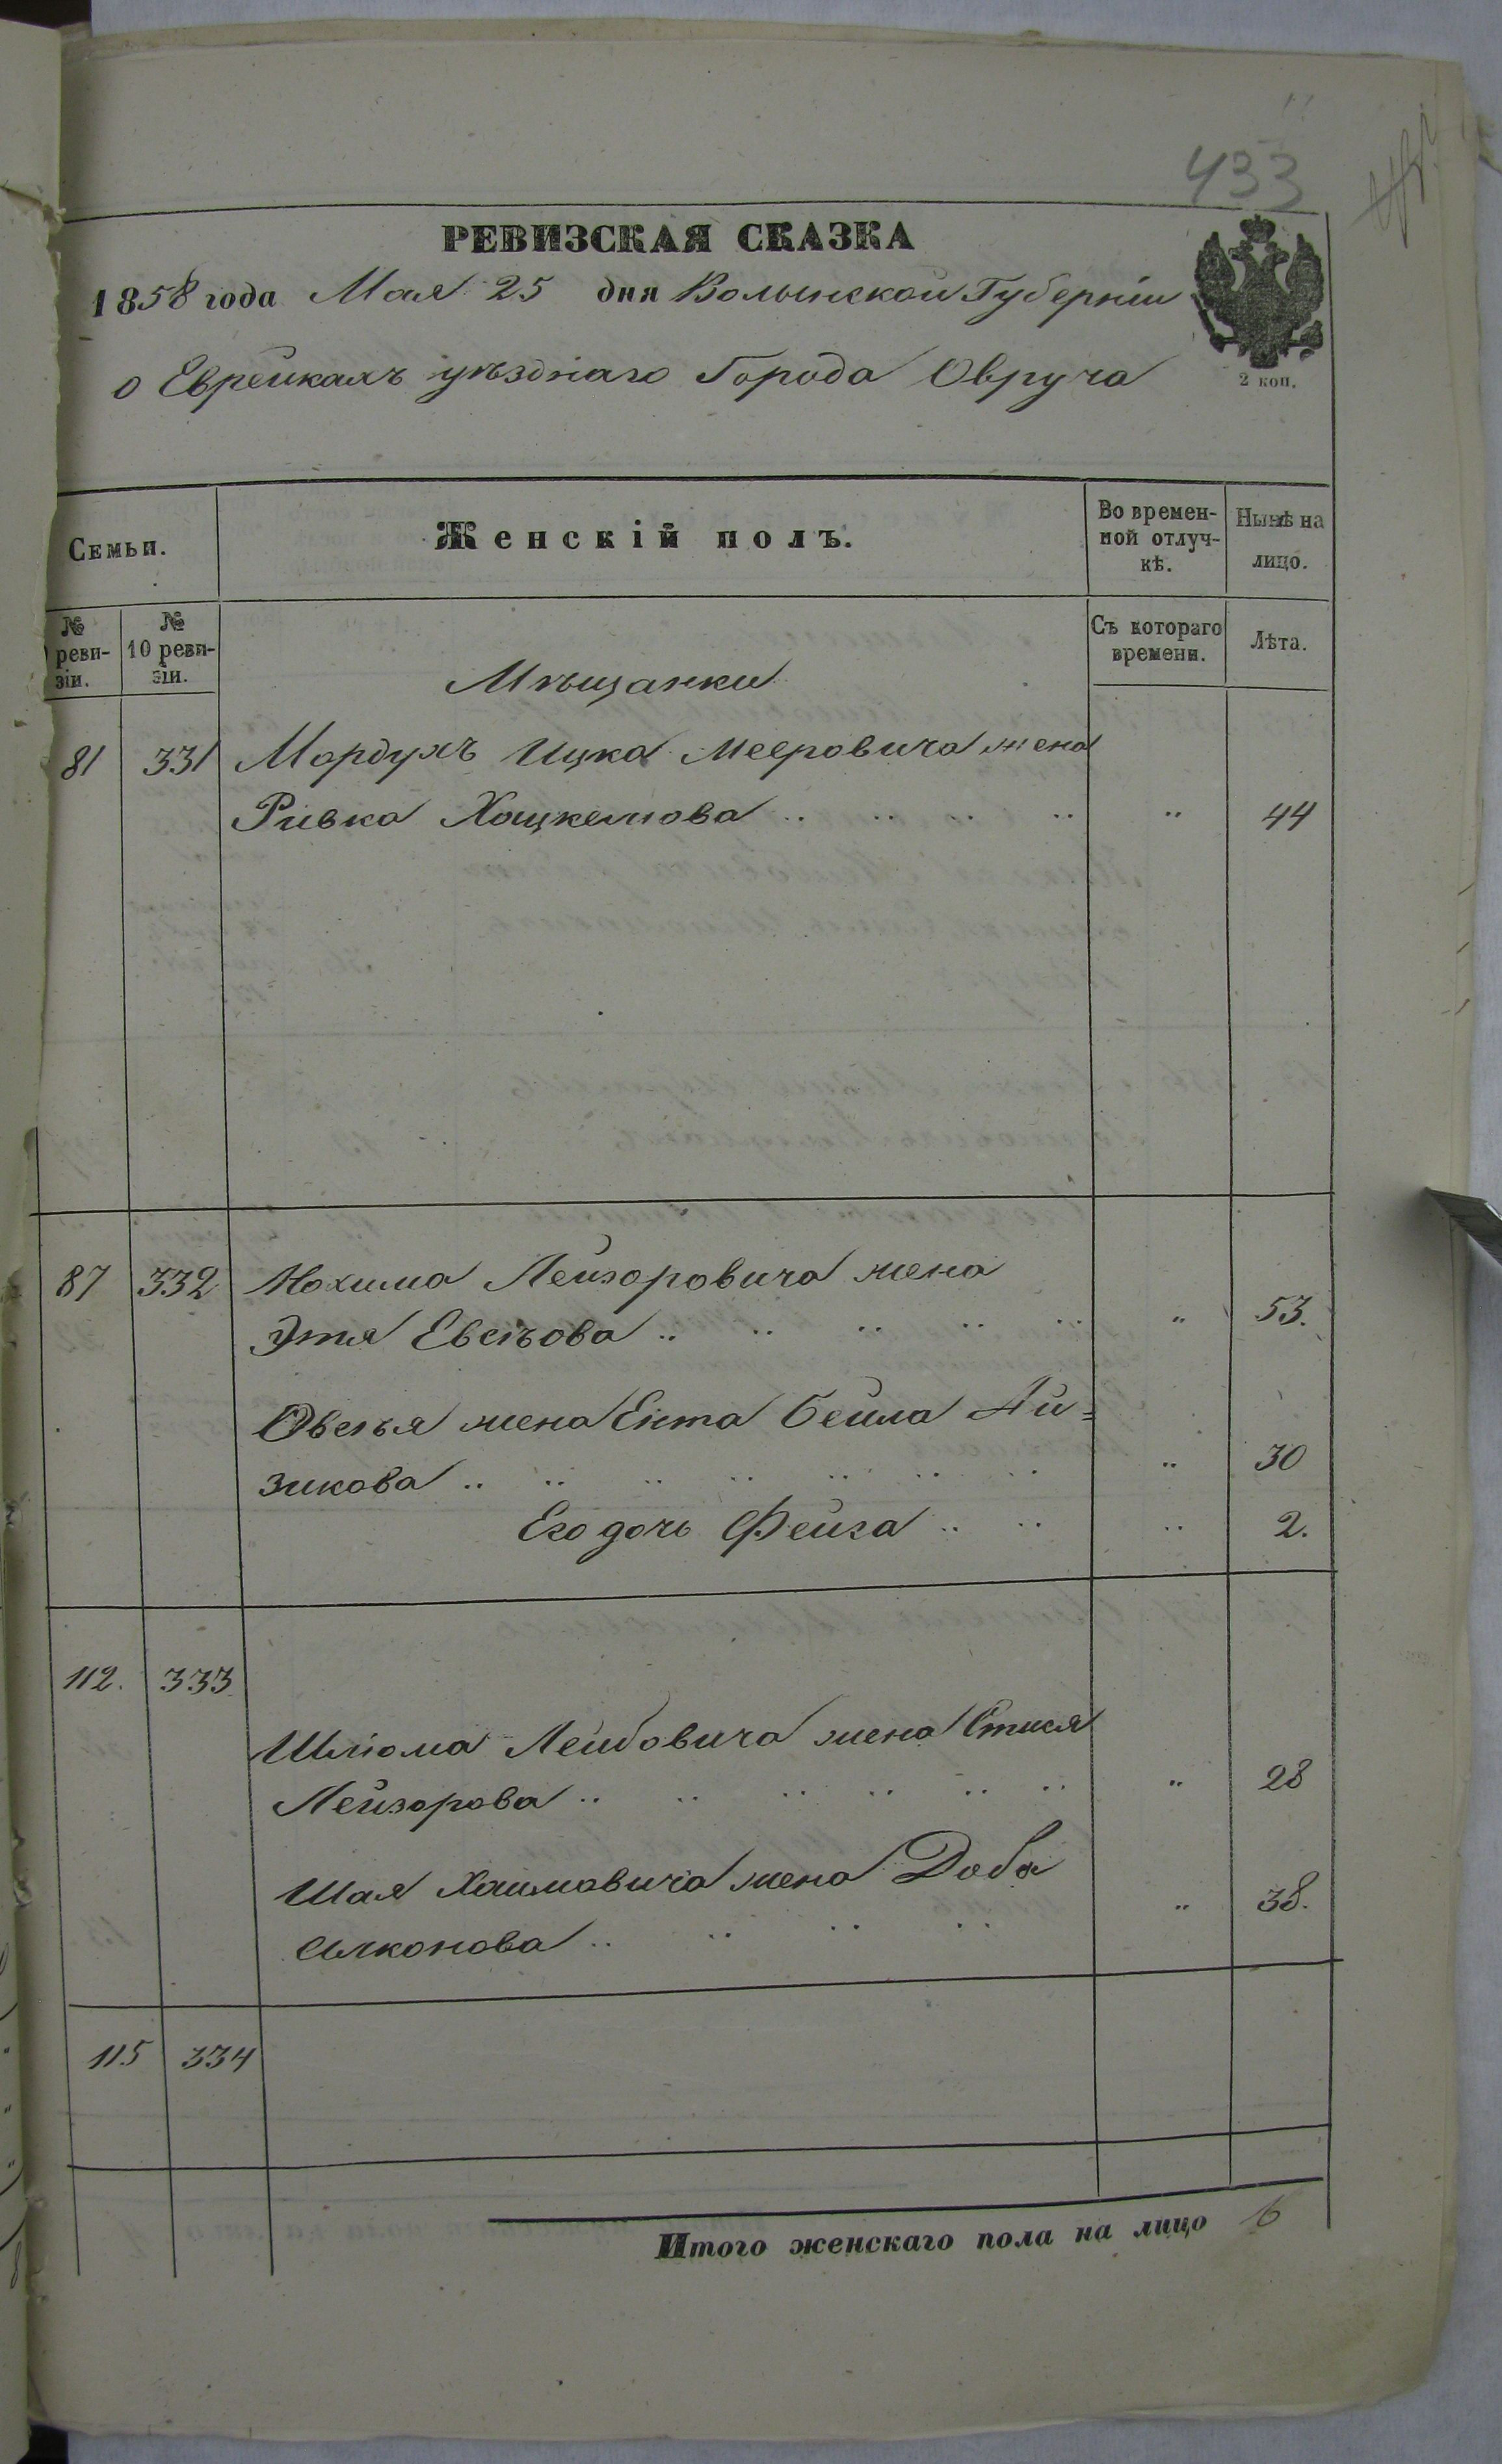 433
РЕВИЗСКАЯ СКАЗКА
1858 года Мая 25 дня Волынской Губерніи
о Еврейкахъ уѣзднаго Города Овруча
2 коп.
Семьи.
Женскій полъ.
Во времен-
ной отлуч-
кѣ.
Нынѣ на
лицо.
№
реви-
зіи.
№
10 реви-
зіи.
Съ котораго
времени.
Лѣта.
Мѣщанки
81 331 Мордухъ Ицка Мееровича жена
Ривка Хацкелюва .. .. .. .. .. 44
87 332 Нохима Лейзоровича жена
Этя Евсѣова .. .. .. .. .. .. 53.
Овсѣя жена Ента Бейла Ай=
зикова .. .. .. .. .. .. .. .. 30
Его дочь Фейга .. .. .. 2.
112. 333
Шліома Лейбовича жена Стися
Лейзорова .. .. .. .. .. .. .. 28
Шая Хаимовича жена Доба
Илконова .. .. .. .. .. 38.
115 334
Итого женскаго пола на лицо 6